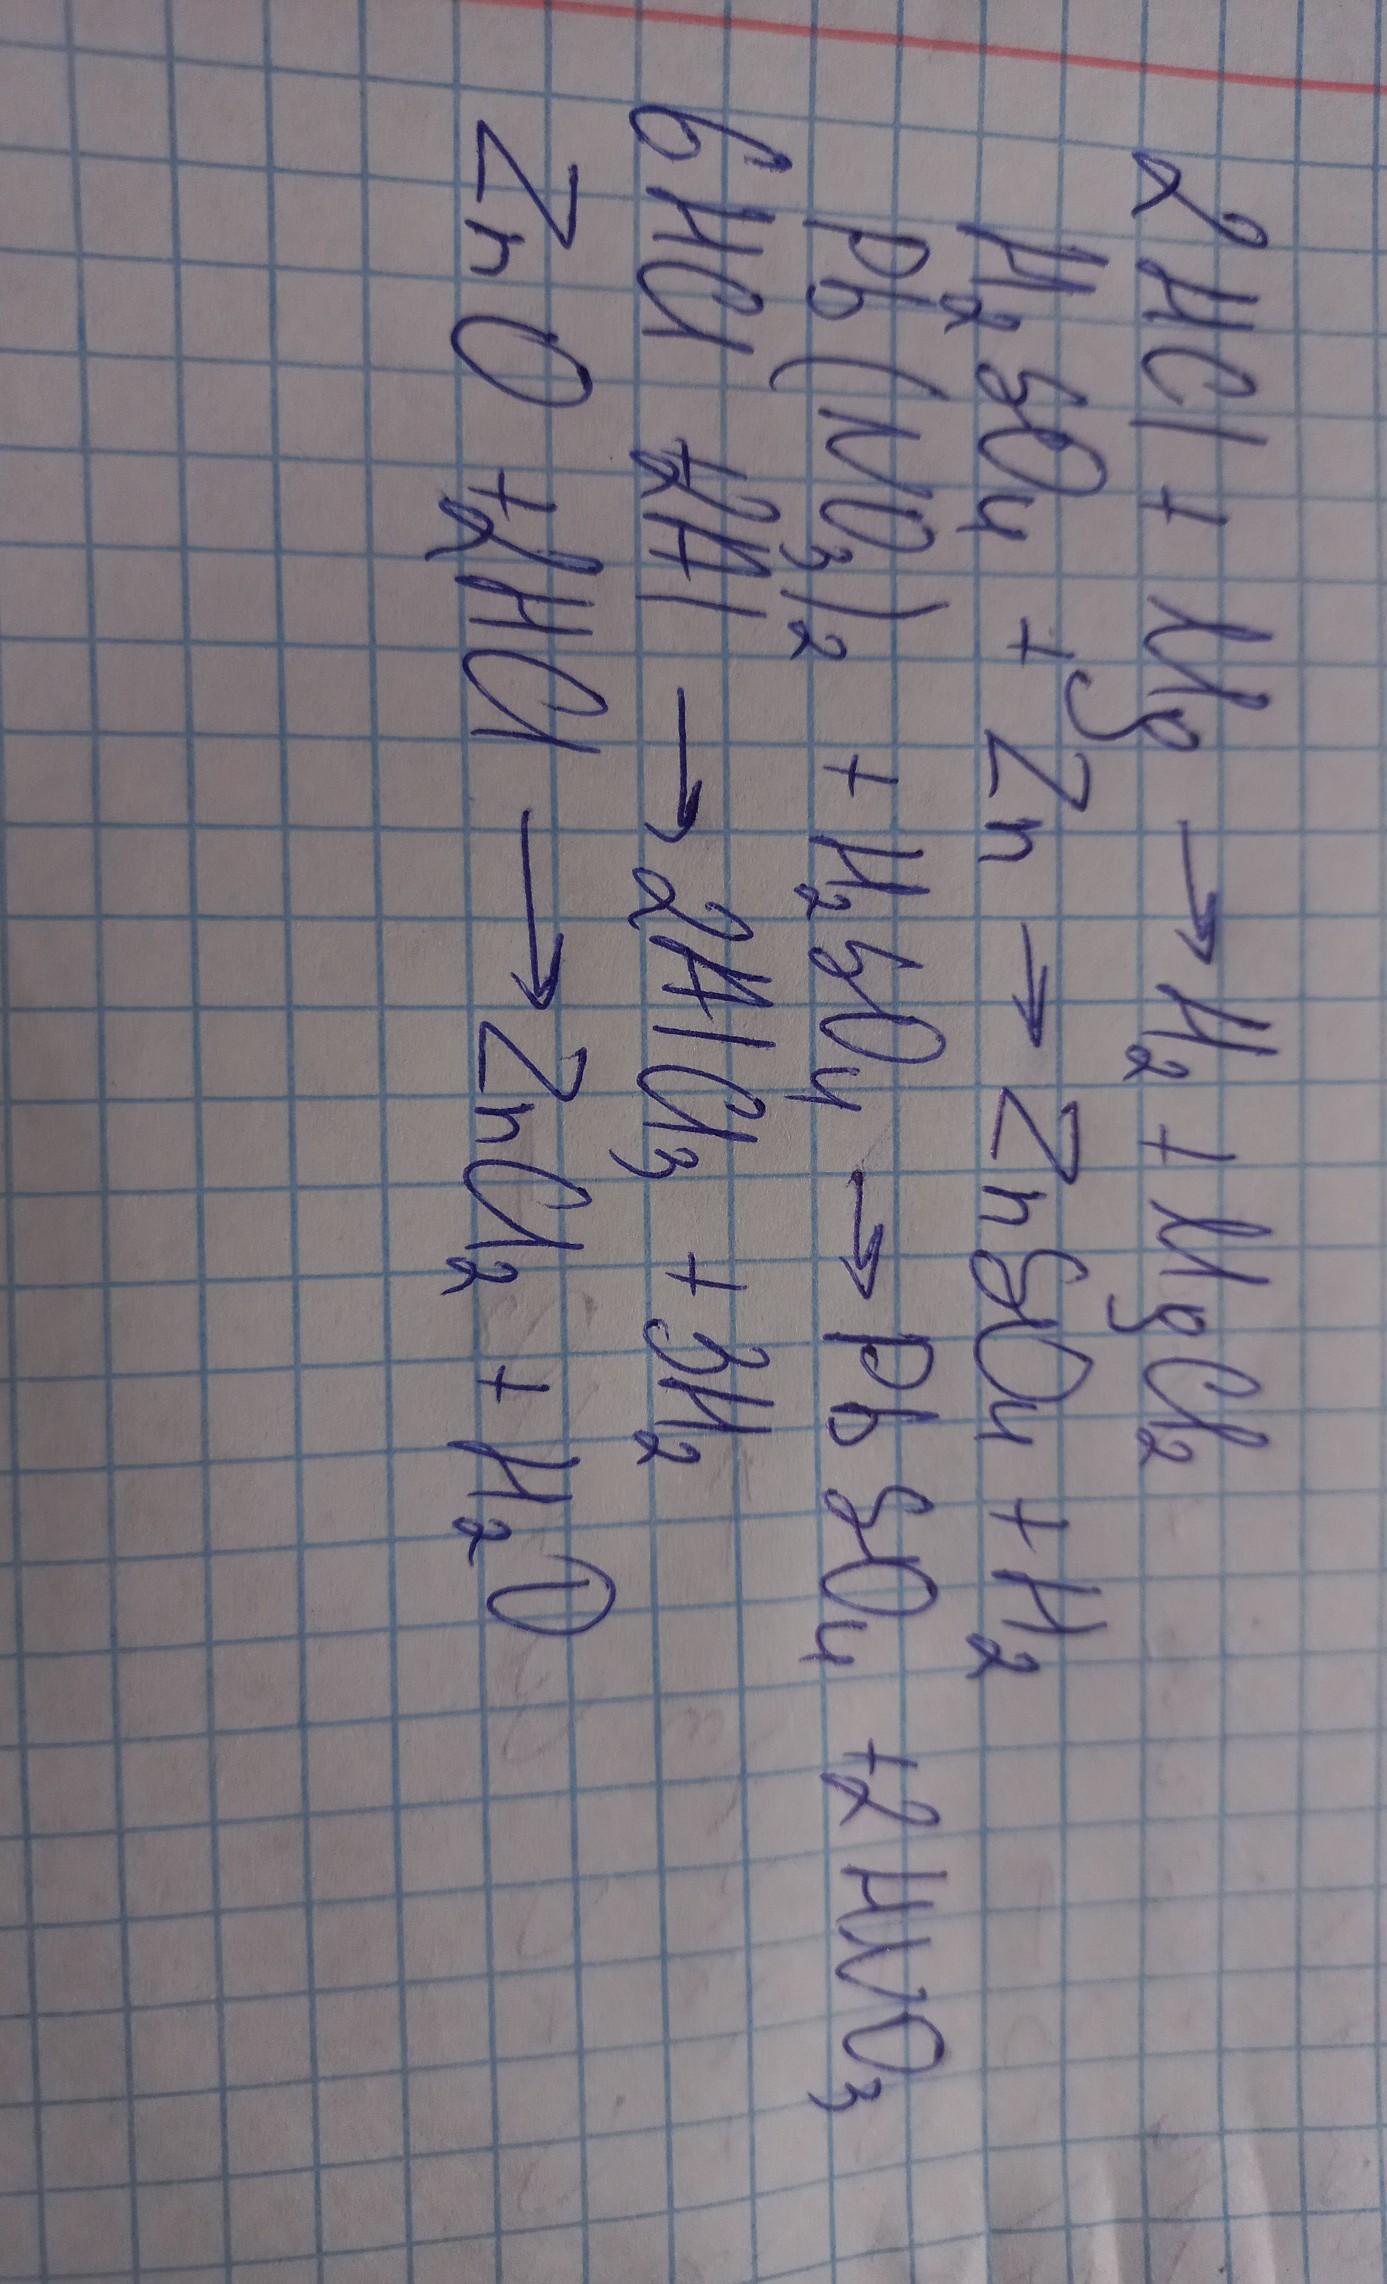 2HCl + Mg → H₂ + MgCl₂
H₂SO₄ + Zn → ZnSO₄ + H₂
Pb(NO₃)₂ + H₂SO₄ → PbSO₄ + 2HNO₃
6HCl + 2Al → 2AlCl₃ + 3H₂
ZnO + 2HCl → ZnCl₂ + H₂O